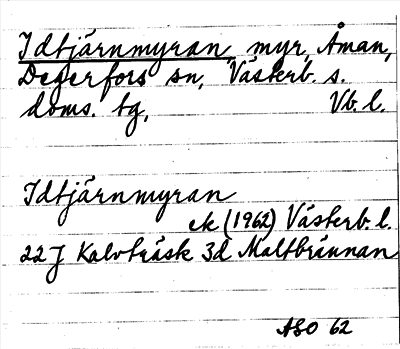 Idtjärnmyran, myr, Åman,
Degerfors sn, Västerb. s.
doms. tg, Vb. l.
Idtjärnmyran
ek (1962) Västerb. l.
22 J Kalvträsk 3d Maltbrännan
ASO 62